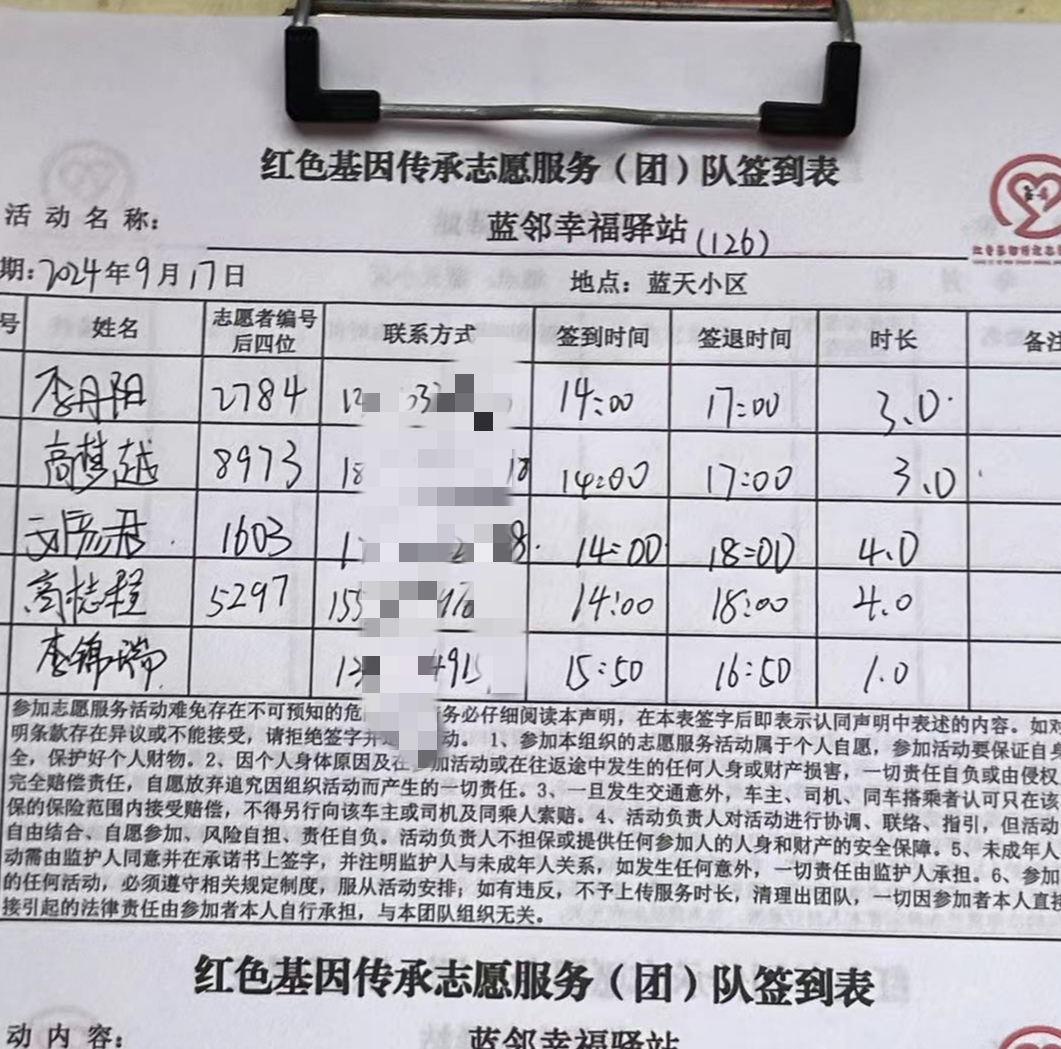 红色基因传承志愿服务（团）队签到表
活动名称： 蓝邻幸福驿站(126)
期：2024年9月17日 地点：蓝天小区
号 姓名 志愿者编号后四位 联系方式 签到时间 签退时间 时长 备注
李丹阳 2784 14:00 17:00 3.0
高梦越 8973 18 18 14:00 17:00 3.0
1603 8. 14:00 18:00 4.0
高 5297 155 14:00 18:00 4.0
李锦瑞 491 15:50 16:50 1.0
参加志愿服务活动难免存在不可预知的危 务必仔细阅读本声明，在本表签字后即表示认同声明中表述的内容。如对
明条款存在异议或不能接受，请拒绝签字并 动。1、参加本组织的志愿服务活动属于个人自愿，参加活动要保证自身
全，保护好个人财物。2、因个人身体原因及在 加活动或在往返途中发生的任何人身或财产损害，一切责任自负或由侵权
完全赔偿责任，自愿放弃追究因组织活动而产生的一切责任。3、一旦发生交通意外，车主、司机、同车搭乘者认可只在该
保的保险范围内接受赔偿，不得另行向该车主或司机及同乘人索赔。4、活动负责人对活动进行协调、联络、指引，但活动
自由结合、自愿参加、风险自担、责任自负。活动负责人不担保或提供任何参加人的人身和财产的安全保障。5、未成年人
动需由监护人同意并在承诺书上签字，并注明监护人与未成年人关系，如发生任何意外，一切责任由监护人承担。6、参加
的任何活动，必须遵守相关规定制度，服从活动安排，如有违反，不予上传服务时长，清理出团队，一切因参加者本人直接
接引起的法律责任由参加者本人自行承担，与本团队组织无关。
红色基因传承志愿服务（团）队签到表
动内容： 蓝邻幸福驿站